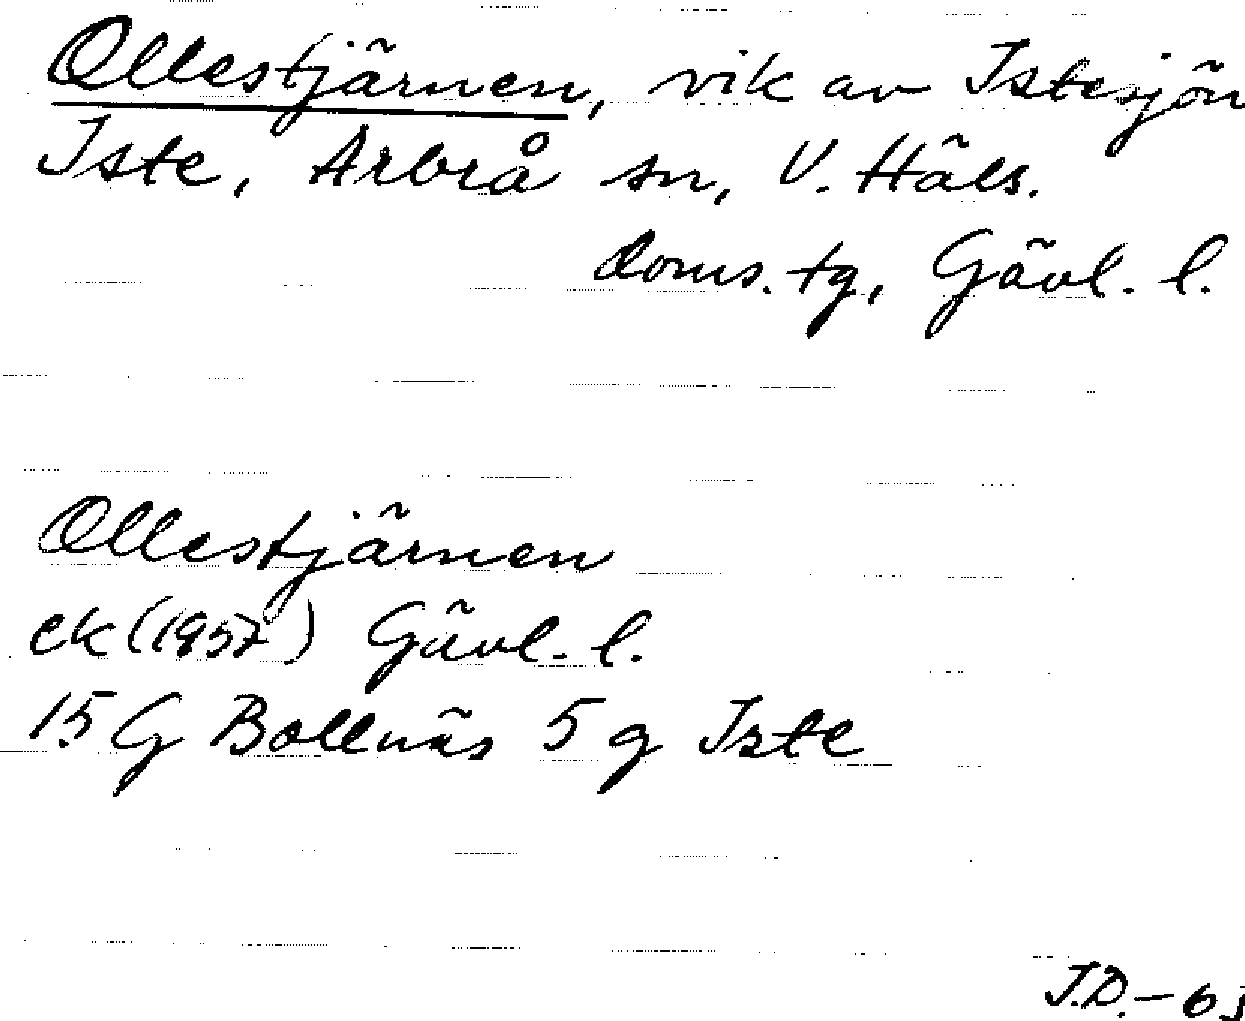 Ollestjärnen, vik av Istesjön
Iste, Arbrå sn, V. Häls.
doms. tg, Gävl. l.
Ollestjärnen
ek (1957) Gävl. l.
15 G Bollnäs 5 g Iste
J.D. –